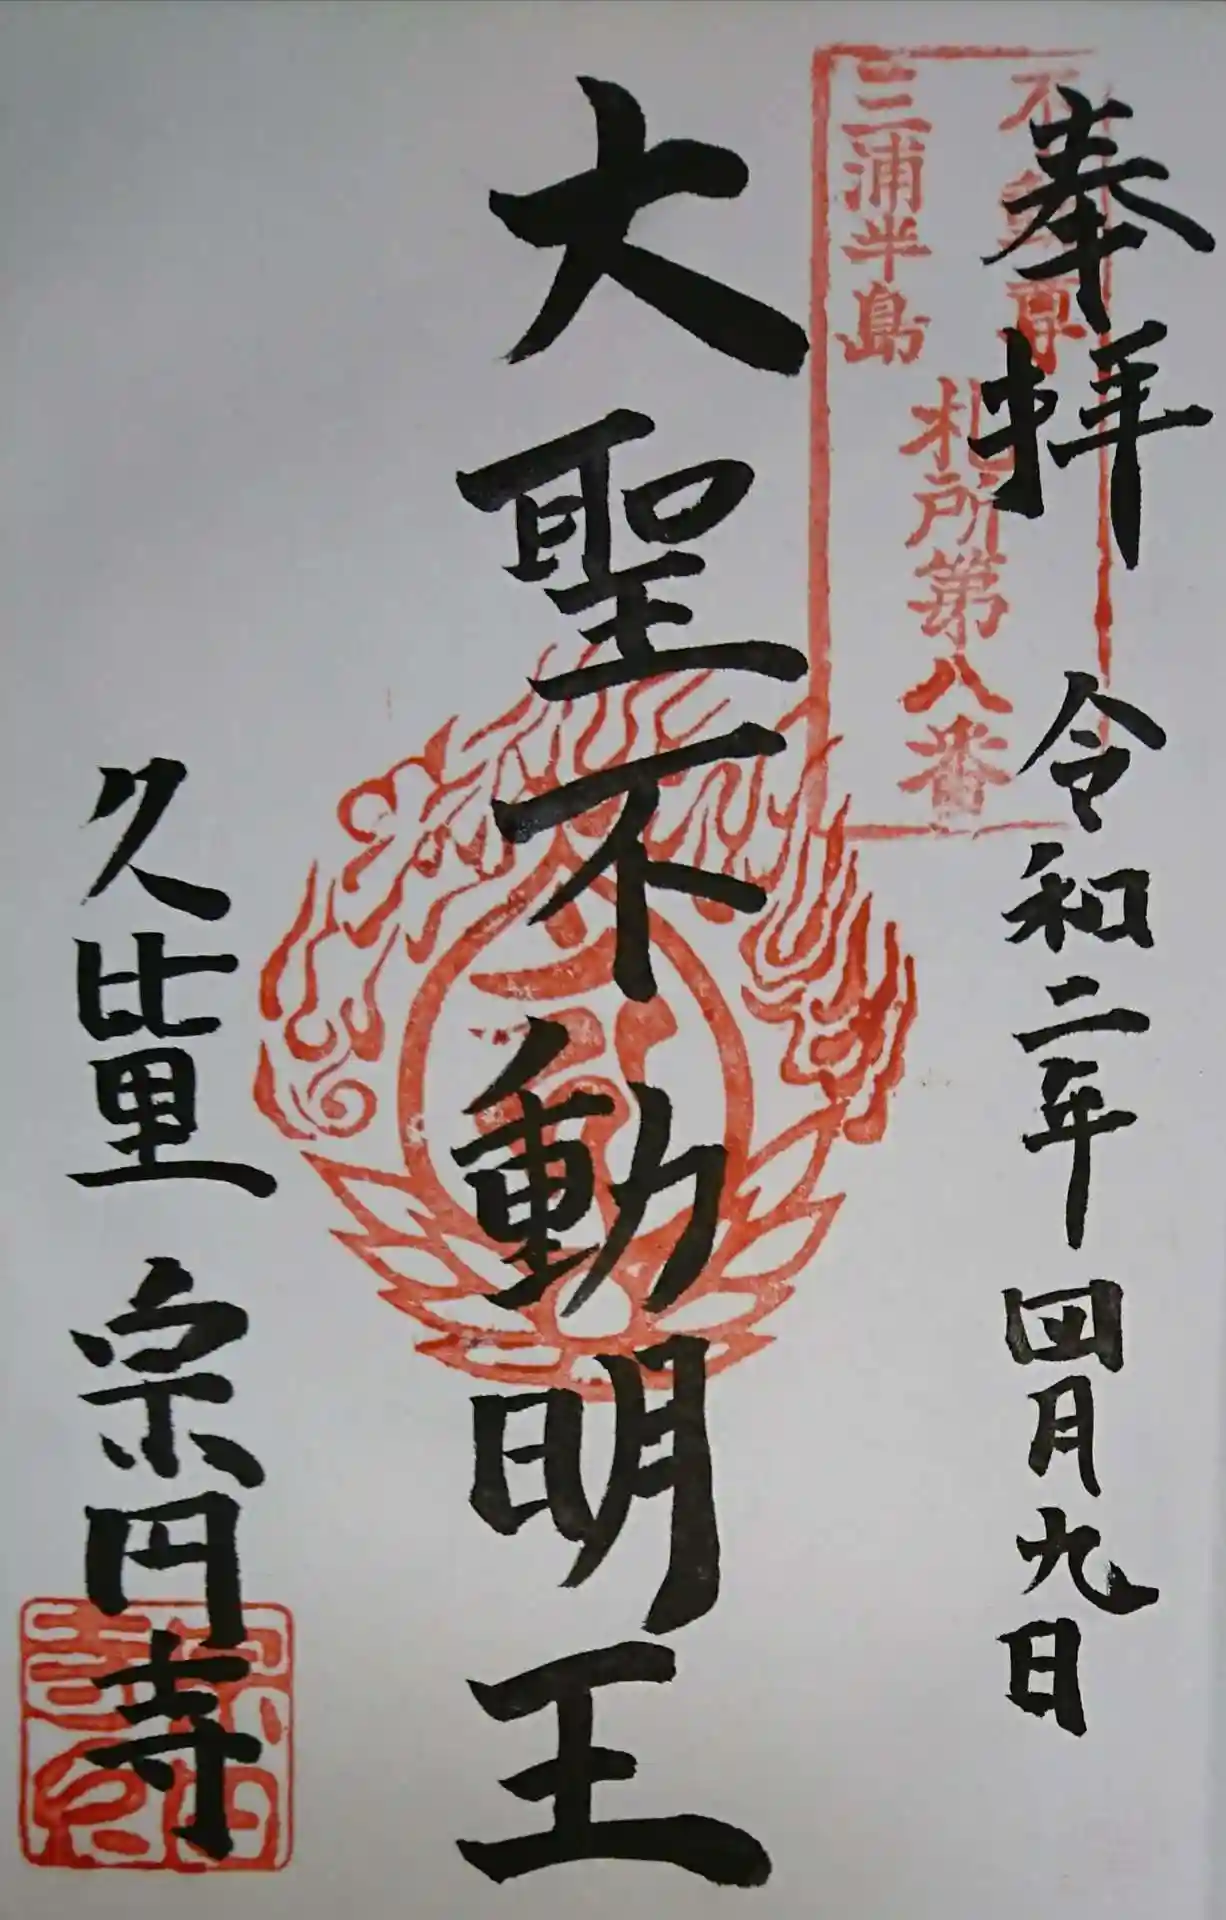 奉拝
令和二年四月九日
不動尊
三浦半島
札所第八番
大聖不動明王
久比里
宗円寺